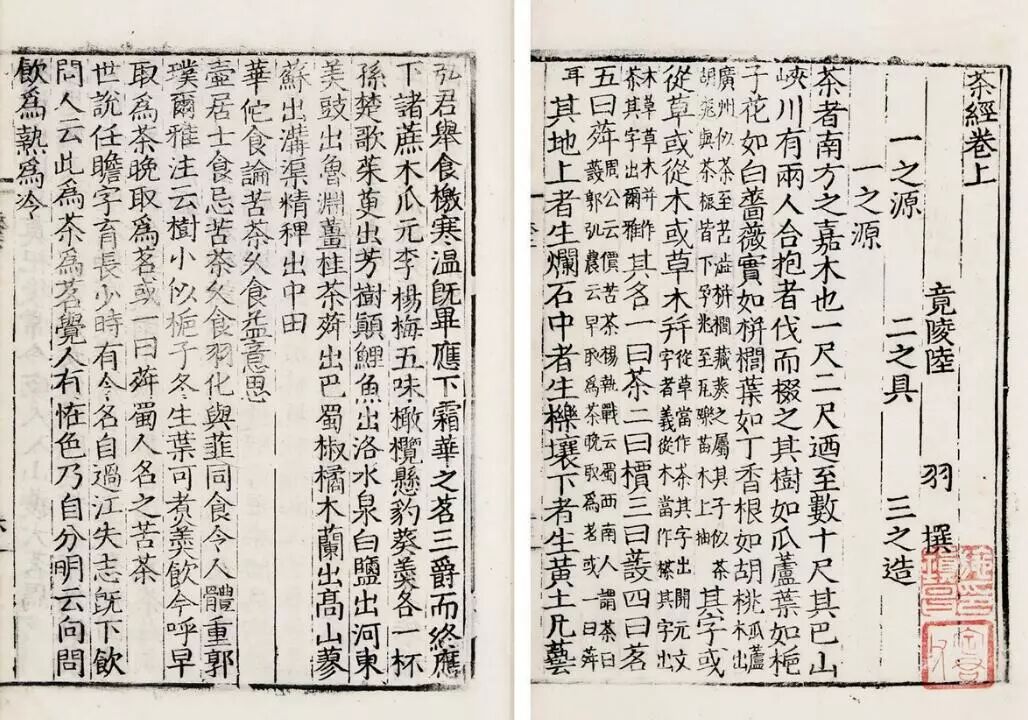 茶經卷上
竟陵陸 羽 撰
一之源 二之具 三之造
一之源
茶者南方之嘉木也一尺二尺迺至數十尺其巴山
峽川有兩人合抱者伐而掇之其樹如瓜蘆葉如梔
子花如白薔薇實如栟櫚葉如丁香根如胡桃 瓜蘆木出
廣州似茶至苦澁栟櫚藏葵之屬其子似茶
胡桃與茶根皆下孕兆至瓦礫苗木上抽 其字或
從草或從木或草木并 從草當作茶其字出開元文
字者義從木當作㮈其字出
木草草木并作
荼其字出爾雅 其名一曰茶二曰檟三曰蔎四曰茗
五曰荈 周公云價苦荼楊執戟云蜀西南人謂荼曰
蔎郭弘農云早取為茶晚取為老或一曰荈
耳 其地上者生爛石中者生櫟壤下者生黃土凡藝
弘君舉食檄寒溫旣畢應下霜華之茗三爵而終應
下諸蔗木瓜元李楊梅五味橄欖懸豹葵羹各一杯
孫楚歌茱萸出芳樹顛鯉魚出洛水泉白鹽出河東
美豉出魯淵薑桂茶荈出巴蜀椒橘木蘭出高山蓼
蘇出溝渠精稗出中田
華佗食論苦茶久食益意思
壺居士食忌苦茶久食羽化與韮同食令人體重郭
璞爾雅注云樹小似梔子冬生葉可煮羹飲今呼早
取為茶晚取為茗或一曰荈蜀人名之苦茶
世說任瞻字育長少時有令名自過江失志旣下飲
問人云此為茶為茗覺人有恠色乃自分明云向問
飲為熱為冷